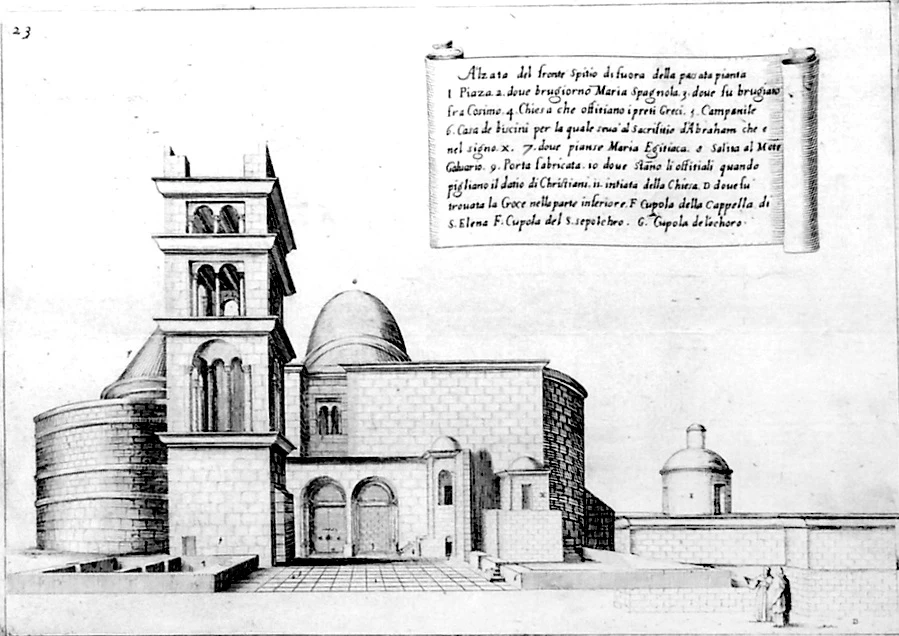 23
Alzata del fronte Spitio di fuora della passata pianta
1 Piaza. 2. doue brugiorno Maria Spagnola. 3. doue fu brugiato
fra Cosimo. 4. Chiesa che offitiano i preti Greci. 5. Campanile
6. Casa de biscini per la quale seua al Sacrifitio d'Abraham che e
nel signo. X. 7. doue pianse Maria Egitiaca. 8 Salita al Mote
Caluario. 9. Porta fabricata. 10 doue stano li offitiali quando
pigliano il datio di Christiani. 11. intiata della Chiesa. D doue fu
trouata la Croce nella parte inferiore. F Cupola della Cappella di
S. Elena F. Cupola del S. sepolchro. G. Cupola de lo choro.